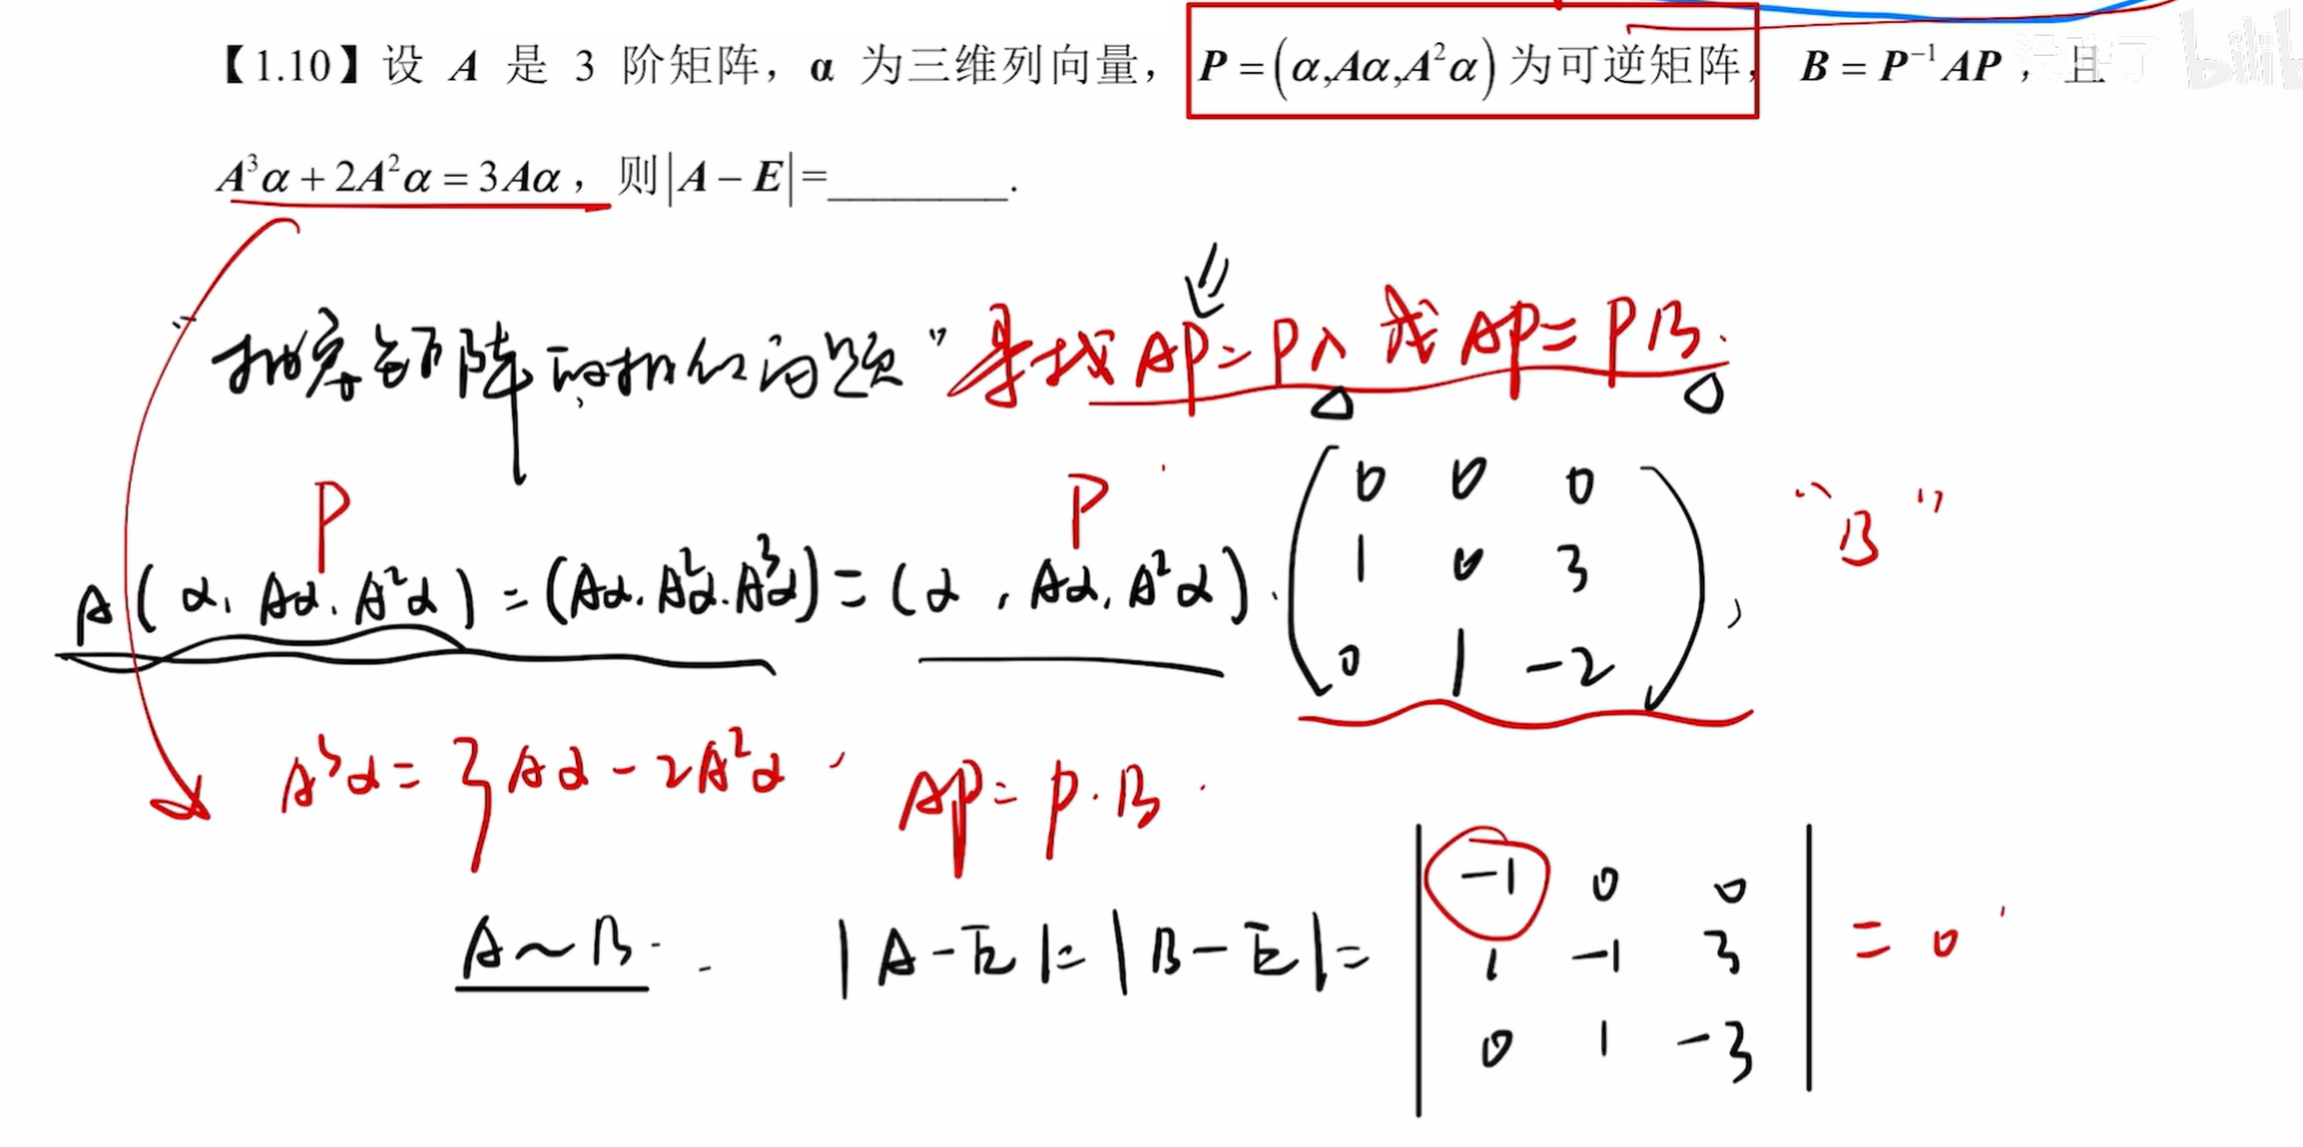 【1.10】设 A 是 3 阶矩阵，α 为三维列向量，P=(α,Aα,A²α)为可逆矩阵，B=P⁻¹AP，且
A³α+2A²α=3Aα，则|A−E|=________.
"抽象矩阵的相似问题" 寻找 AP=PΛ 或 AP=PB.
P P
0 0 0
A(α, Aα, A²α)=(Aα, A²α, A³α)=(α, Aα, A²α)· 1 0 3 , "B"
0 1 -2
A³α=3Aα-2A²α, AP=P·B.
-1 0 0
A~B. |A-E|=|B-E|= 1 -1 3 =0
0 1 -3